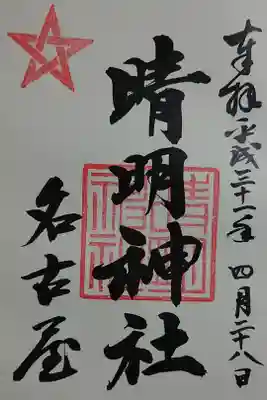 奉拝 平成三十一年 四月二十八日
晴明神社
名古屋